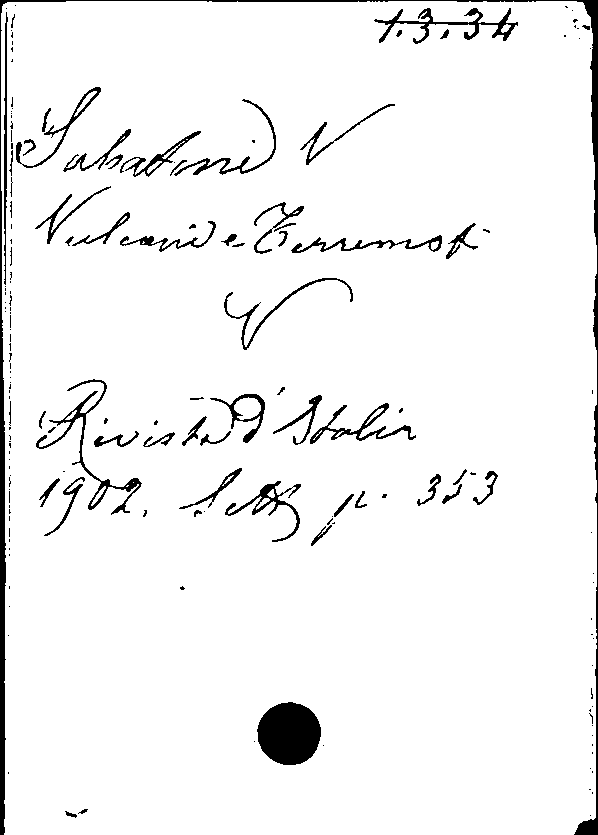 1.3.34
Sabatini V
Vulcani e Terremoti
V
Rivista d'Italia
1902. Sett p. 353